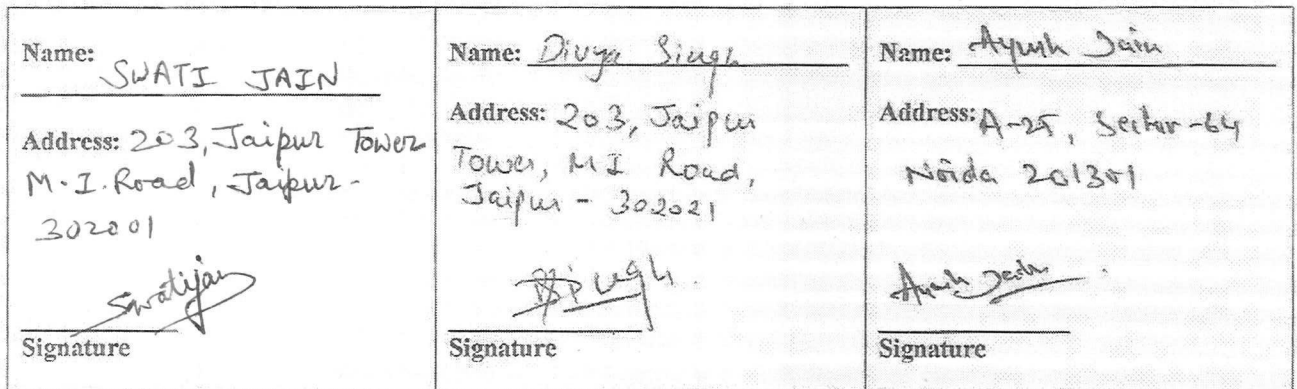 Name:
SWATI JAIN
Address: 203, Jaipur Tower
M.I. Road, Jaipur-
302001
Swatijain
Signature
Name: Divya Singh
Address: 203, Jaipur
Tower, M I Road,
Jaipur - 302021
Signature
Name: Ayush Jain
Address: A-25, Sector-64
Noida 201301
Ayush Jain
Signature